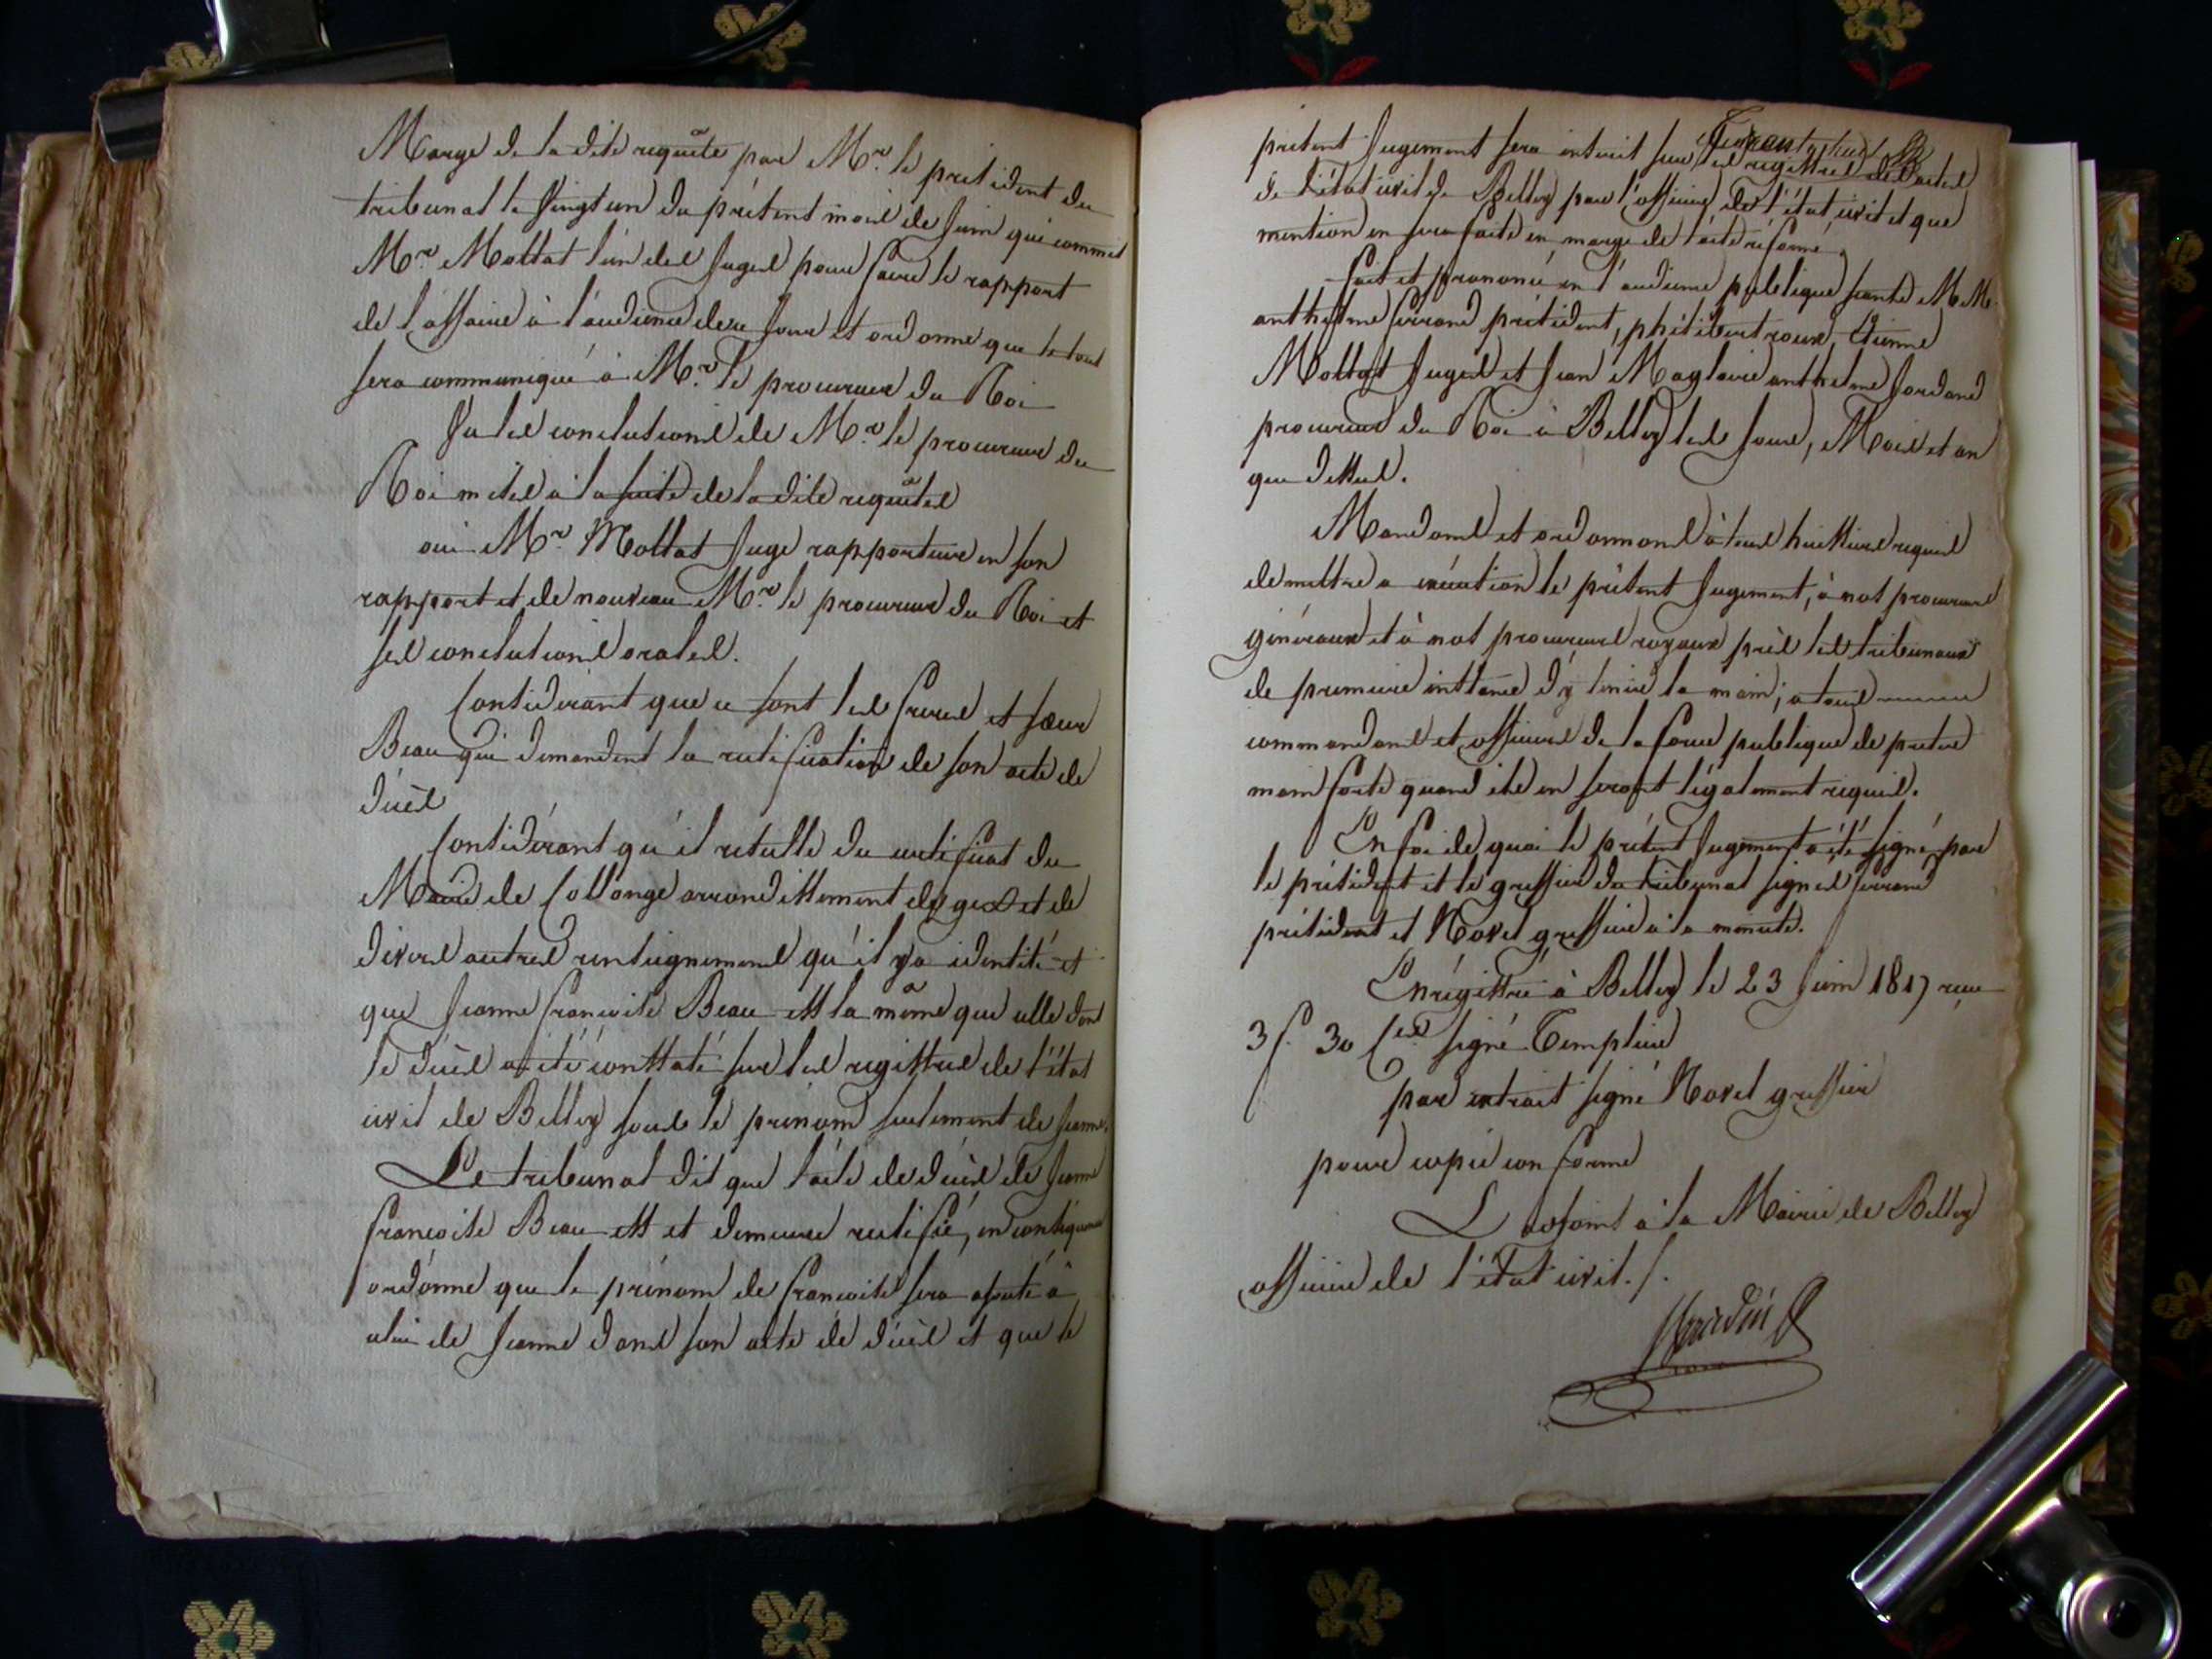 Marge de la dite requête par Mr. le président du
tribunal le vingt un du présent mois de Juin qui commet
Mr. Mollat l'un des Juges pour faire le rapport
de l'affaire à l'audience de ce Jour et ordonne que le tout
sera communiqué à Mr. le procureur du Roi
Vu les conclusions de Mr. le procureur du
Roi mises à la suite de la dite requêtes
oui Mr. Mollat Juge rapporteur en son
rapport et de nouveau Mr. le procureur du Roi et
ses conclusions orales.
Considérant que ce sont les freres et sœur
Beau qui demandent la rectification de son acte de
décès
Considérant qu'il résulte du certificat du
Maire de Collonge arrondissement de gex et de
divers autres renseignemens qu'il y a identité et
que Jeanne françoise Beau est la même que celle dont
le décès a été constaté sur les registres de l'état
civil de Belley sous le prénom seulement de Jeanne.
Le tribunal dit que l'acte de décès de Jeanne
françoise Beau est et demeure rectifié, en conséquence
ordonne que le prénom de françoise sera ajouté à
celui de Jeanne dans son acte de décès et que le
présent Jugement sera inscrit sur les registres des actes
de l'état civil de Belley par l'officier de l'état civil et que
mention en sera faite en marge de l'acte réformé.
fait et prononcé en l'audience publique séante MM.
anthelme ferrand président, philibert roux, Etienne
Mollat Juges et Jean Magloire anthelme Jordand
procureur du Roi à Belley les Jour, Mois et an
que dessus.
Mandons et ordonnons à tous huissiers requis
de mettre a exécution le présent Jugement, à nos procureurs
généraux et à nos procureurs royaux près les tribunaux
de premiere instance d'y tenir la main; a tous
commandans et officiers de la force publique de preter
main forte quand ils en seront légalement requis.
En foi de quoi le présent Jugement a été signé par
le président et le greffier du tribunal signes ferrand
président et Novel greffier à la minute.
Enrégistré à Belley le 23 Juin 1817 reçu
3 f. 30 Ces signé Templier
par extrait signé Novel greffier
pour copie conforme
L'adjoint à la Mairie de Belley
officier de l'état civil./.